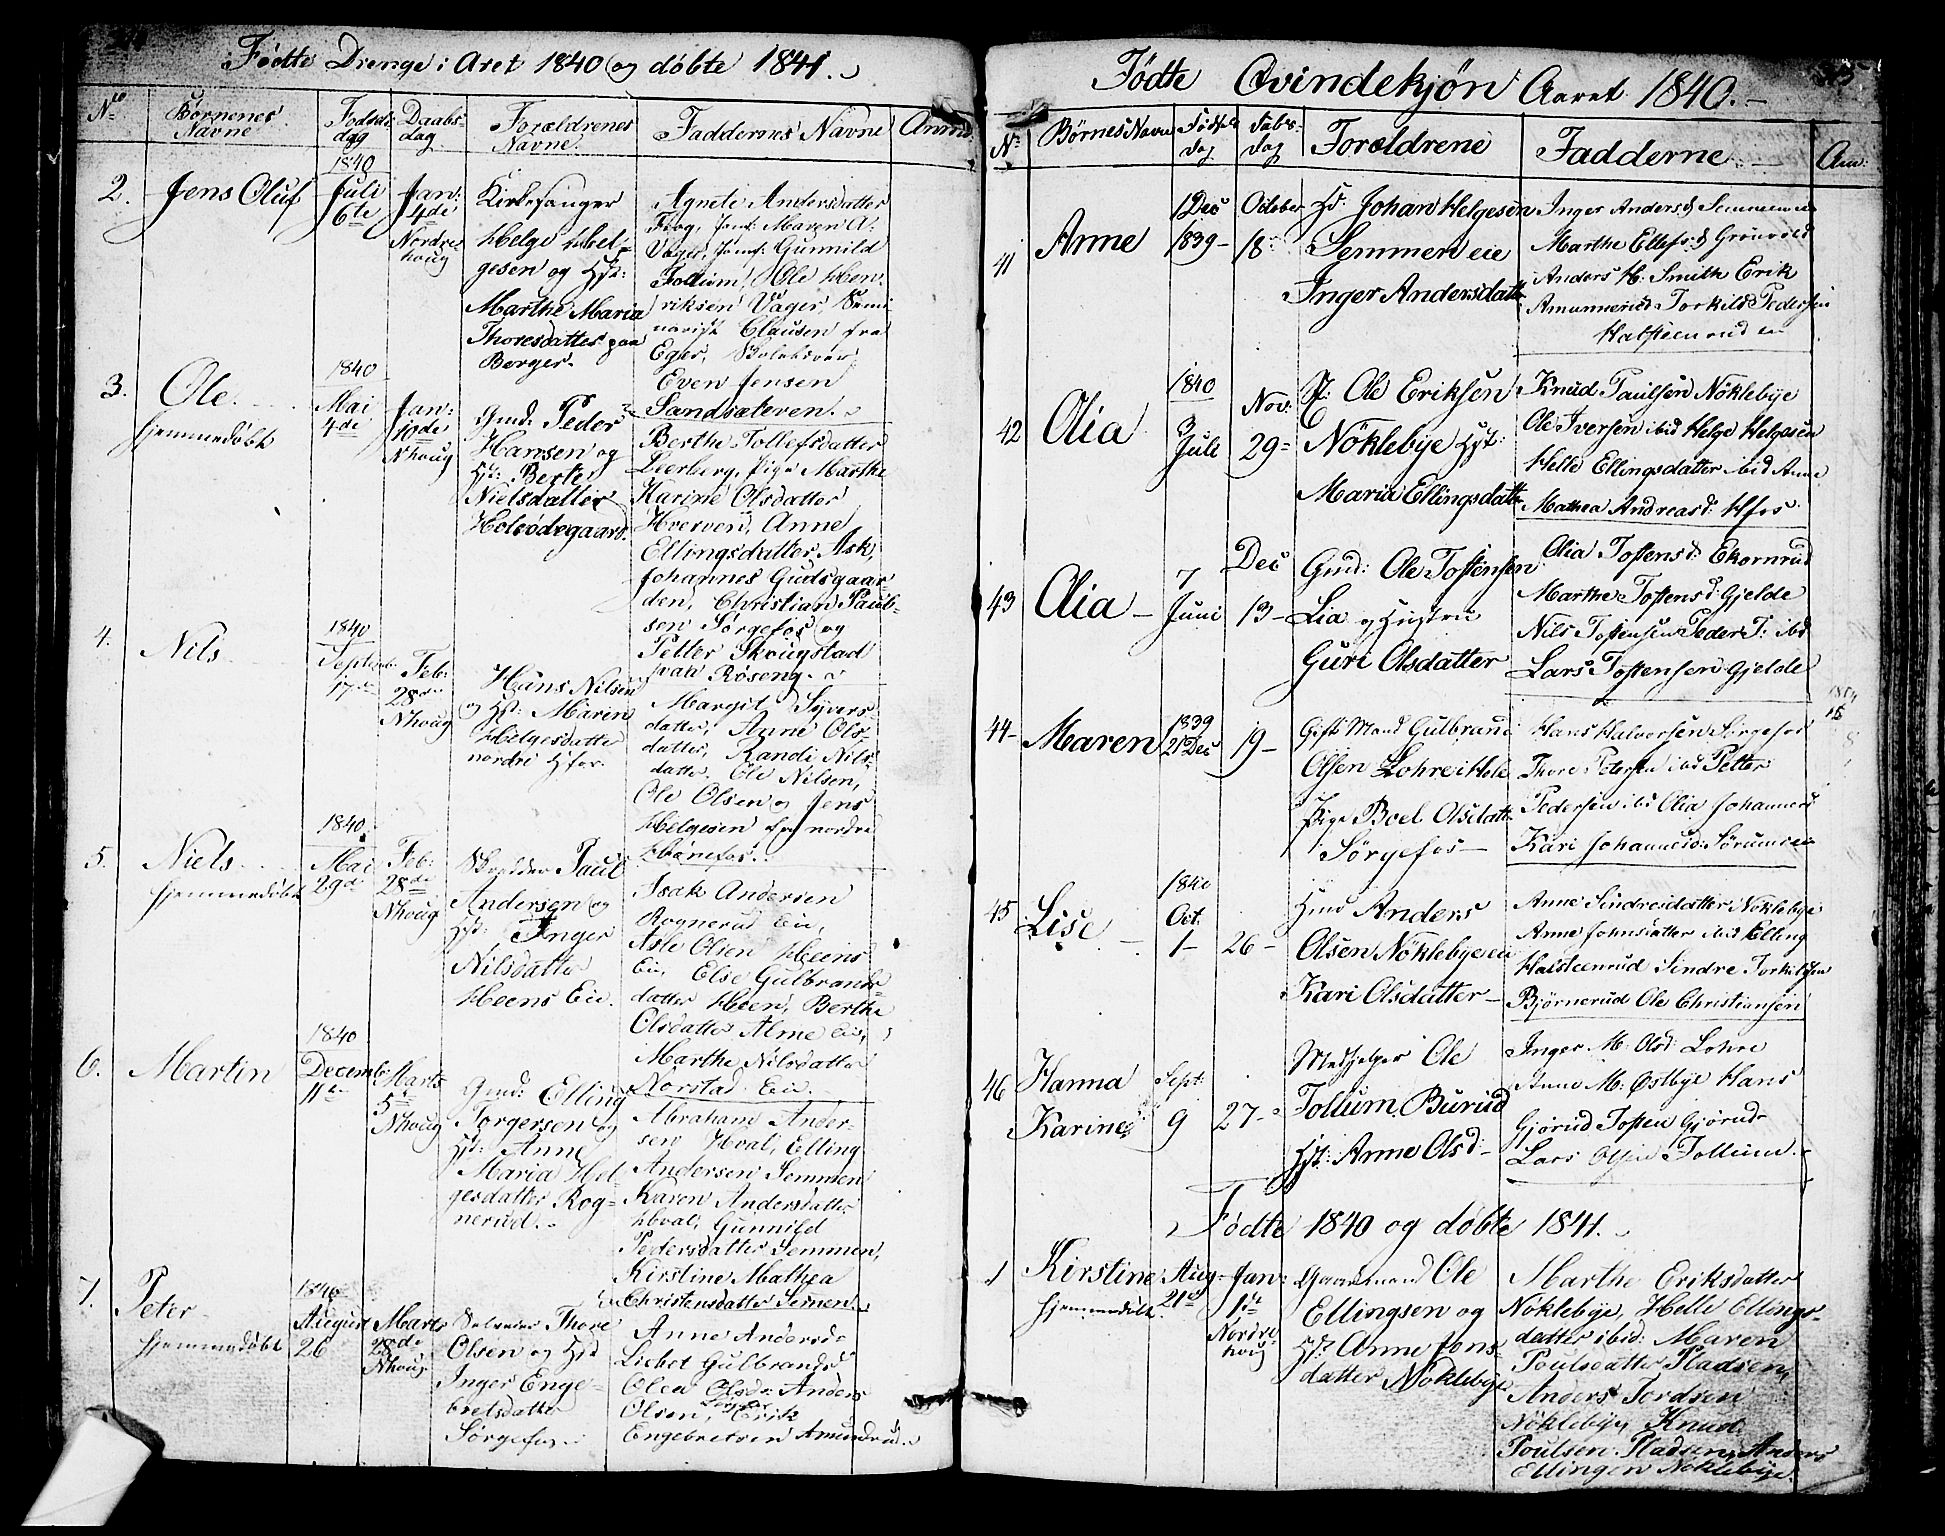 Fødte Drenge i Aret 1840 og døbte 1841.
No Børnenes Navne Fødselsdag Daabsdag Forældrenes Navne. Faddernes Navne Anm
2. Jens Oluf
1840
Juli
6te
Jan:
4de
Nordrehoug
Kirkesanger
Helge Helgesen
og Hst:
Marthe Maria
Thoresdatter paa
Berger.
Agnete Andersdatter
Flog, Jomf: Maren A.
Vager, Jomf: Gunnild
Follum, Ole Henriksen
Vager, Seminarist
Clausen fra
Eger,
Even Jensen
Sandsæteren.
3. Ole.
hjemmedøbt
1840
Mai
4de
Jan:
10de
Nhoug
Gmd: Peder
Hansen og
Hst: Berte
Nielsdatter
Holsødegaard.
Berthe Tollefsdatter
Lierberg, Pige Marthe
Karine Olsdatter
Hverven, Anne
Ellingsdatter Ask,
Johannes Gudsgaarden,
Christian Paulsen
Sørgefos og
Petter Skougstad
paa Røseng.
4. Nils
1840
Septemb:
17de
Feb:
28de
Nhoug
Hans Nilsen
og Hst: Maren
Helgesdatter
nordre Hfos.
Margit Syversdatter,
Anne Olsdatter,
Randi Nilsdatter,
Ole Nilsen,
Ole Olsen og Jens
Helgesen fra nordre
Hønefos.
5. Niels
hjemmedøbt
1840
Mai
29de
Feb:
28de
Nhoug
Skrædder Paul
Andersen og
Hst: Inger
Nilsdatter
Heens Eie.
Isak Andersen
Rognerud Eie,
Asle Olsen Heens
Eie, Else Gulbrandsdatter
Heen, Berthe
Olsdatter Alme Eie,
Marthe Nilsdatter
Rørstad Eie.
6. Martin
1840
Decemb:
11te
Marts
5te
Nhoug
Gmd: Elling
Torgersen og
Hst: Anne
Maria Helgesdatter
Rognerud.
Abraham Andersen
Hval, Elling
Andersen Semmen
Karen Andersdatter
Hval, Gunnild
Pedersdatter Semmen,
Kirstine Mathea
Christensdatter Semen
7. Peter
hjemmedøbt
1840
August
26
Marts
28de
Nhoug
Selveier Thore
Olsen og Hst
Inger Engebretsdatter
Sørgefos.
Anne Andersd:
Lisbet Gulbrandsd
Olea Olsd: Anders
Olsen, Erik
Engebretsen Amundrud.
Fødte Qvindekjøn Aaret 1840.
No Børnes Navne Fødsels Dag Daabs-Dag Forældrene Fadderne Anm:
41 Anne
1 Dec
1839
October
18
Hd: Johan Helgesen
Semmen eie
Inger Andersdatter
Inger Andersd Semmen eie
Marthe Ellefsd Grønvold
Anders H. Smith Erik
Amunnerud Torkild Pedersen
Halsteenrud eie
42 Olia
1840
3
Jule
Nov:
29
Ole Eriksen
Nøklebye Hst:
Maria Ellingsdatter
Knud Paulsen Nøklebye
Ole Iversen ibid Helge Helgesen
Helle Ellingsdatter ibid Anne
Mathea Andreasd: Hfos
43 Olia
7
Juni
Dec
13
Gmd: Ole Tostensen
Lia og Hustru
Guri Olsdatter
Olia Tostensd: Ekornrud
Marthe Tostensd: Gjelde
Nils Tostensen Peder T: ibd
Lars Tostensen Gjelde
44 Maren
1839
21 Dec
19
Gift Mand Gulbrand
Olsen Lohre i Hole
Pige Boel Olsdatter
Sørgefos
Hans Halvorsen Sørgefos
Thore Petersen ibd Petter
Pedersen ibd Olia Johannesd
Kari Johannesd: Sørum eie
45 Lise
1840
Oct.
1
26
Hmd Anders
Olsen Nøklebye eie
Kari Olsdatter
Anne Sindresdatter Nøklebye
Anne Johnsdatter ibid Elling
Halsteenrud Sindre Torkildsen
Bjørnerud Ole Christiansen
46 Hanna
Karine
Sept:
9
27
Medhjelper Ole
Follum Burud
Hst: Anne Olsd
Inger M: Olsd: Lohre
Anne M: Østbye Hans
Gjørud Tosten Gjørud
Lars Olsen Follum
Fødte 1840 og døbte 1841.
1 Kirstine
hjemmedøbt
Aug
21de
Jan:
1ste
Nordrehoug
Gaardmand Ole
Ellingsen og
Hst Anne Jonsdatter
Nøklebye
Marthe Eriksdatter
Nøklebye, Helle Ellingsdatter
ibid: Maren
Poulsdatter Pladsen,
Anders Tordsen
Nøklebye, Knud
Poulsen Pladsen, Anders
Ellingen Nøklebye.